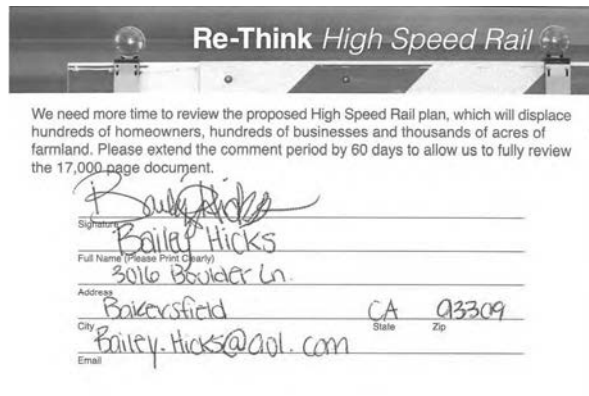 Re-Think High Speed Rail
We need more time to review the proposed High Speed Rail plan, which will displace
hundreds of homeowners, hundreds of businesses and thousands of acres of
farmland. Please extend the comment period by 60 days to allow us to fully review
the 17,000 page document.
Bailey Hicks
Signature
Bailey Hicks
Full Name (Please Print Clearly)
3016 Boulder Ln.
Address
Bakersfield CA 93309
City State Zip
Bailey.Hicks@aol.com
Email